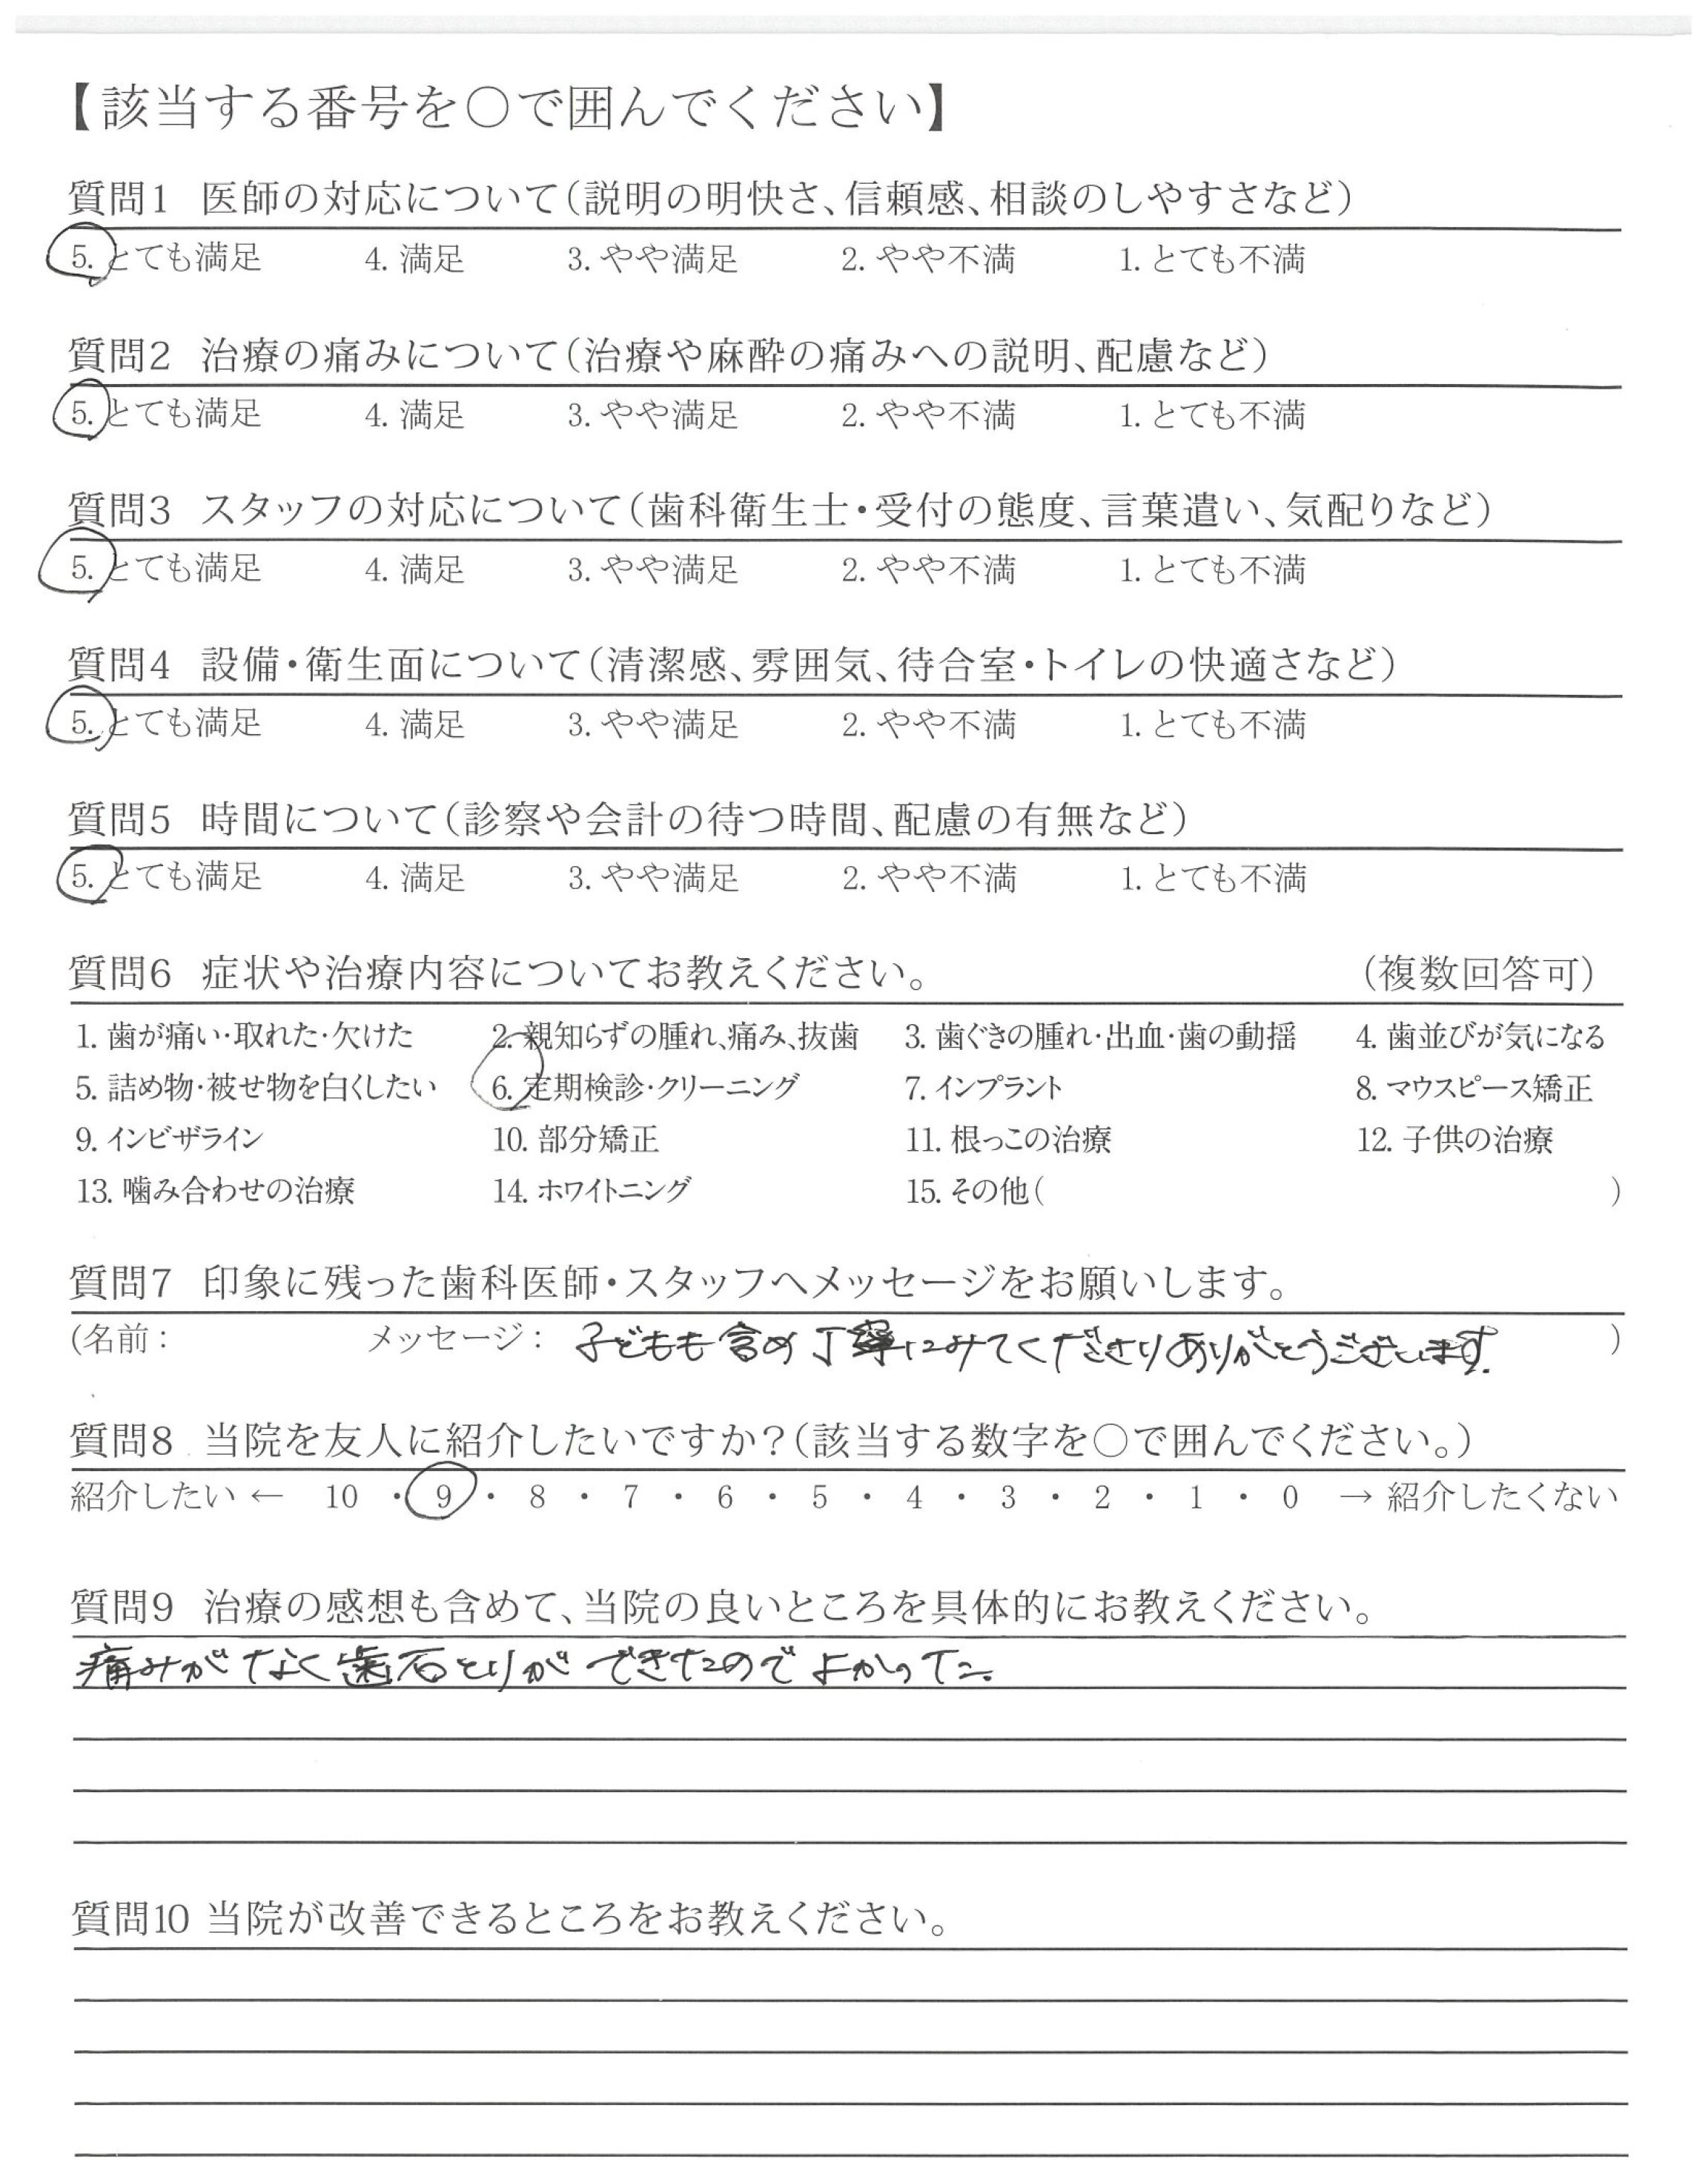 【該当する番号を○で囲んでください】
質問1 医師の対応について(説明の明快さ、信頼感、相談のしやすさなど)
5. とても満足 4. 満足 3. やや満足 2. やや不満 1. とても不満
質問2 治療の痛みについて(治療や麻酔の痛みへの説明、配慮など)
5. とても満足 4. 満足 3. やや満足 2. やや不満 1. とても不満
質問3 スタッフの対応について(歯科衛生士・受付の態度、言葉遣い、気配りなど)
5. とても満足 4. 満足 3. やや満足 2. やや不満 1. とても不満
質問4 設備・衛生面について(清潔感、雰囲気、待合室・トイレの快適さなど)
5. とても満足 4. 満足 3. やや満足 2. やや不満 1. とても不満
質問5 時間について(診察や会計の待つ時間、配慮の有無など)
5. とても満足 4. 満足 3. やや満足 2. やや不満 1. とても不満
質問6 症状や治療内容についてお教えください。 (複数回答可)
1. 歯が痛い・取れた・欠けた 2. 親知らずの腫れ、痛み、抜歯 3. 歯ぐきの腫れ・出血・歯の動揺 4. 歯並びが気になる
5. 詰め物・被せ物を白くしたい 6. 定期検診・クリーニング 7. インプラント 8. マウスピース矯正
9. インビザライン 10. 部分矯正 11. 根っこの治療 12. 子供の治療
13. 噛み合わせの治療 14. ホワイトニング 15. その他( )
質問7 印象に残った歯科医師・スタッフへメッセージをお願いします。
(名前: メッセージ: 子どもも含め丁寧にみてくださりありがとうございます。 )
質問8 当院を友人に紹介したいですか?(該当する数字を○で囲んでください。)
紹介したい ← 10 ・ 9 ・ 8 ・ 7 ・ 6 ・ 5 ・ 4 ・ 3 ・ 2 ・ 1 ・ 0 → 紹介したくない
質問9 治療の感想も含めて、当院の良いところを具体的にお教えください。
痛みがなく歯石とりができたのでよかった。
質問10 当院が改善できるところをお教えください。